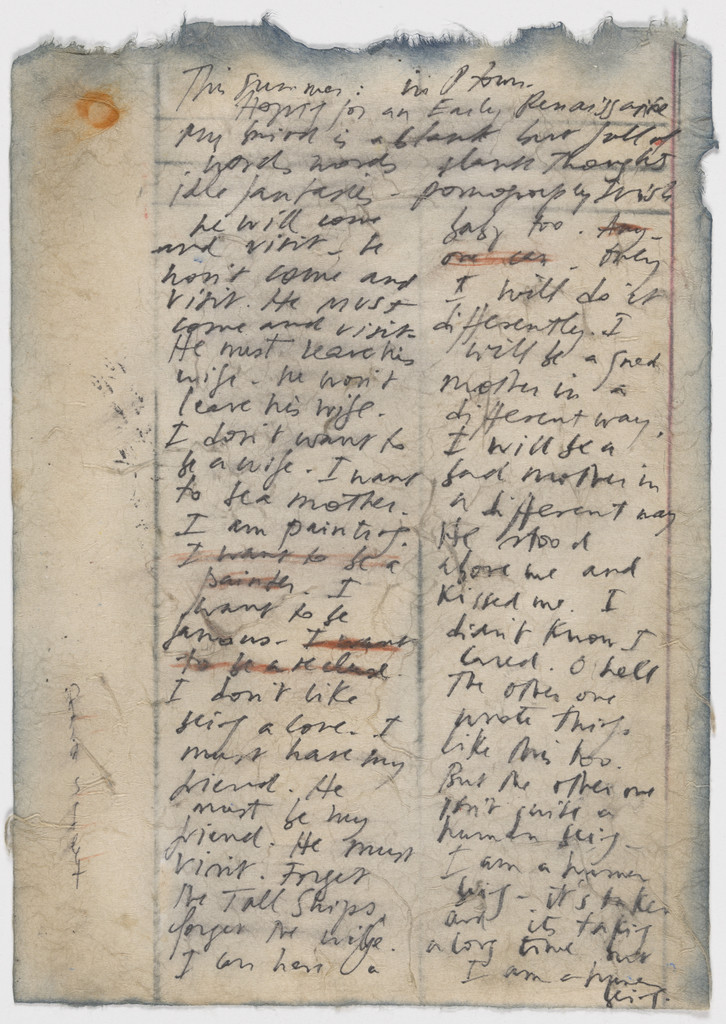 This summer: in P town.
Hoping for an Early Renaissance
My mind is a blank but full of
words words blank thoughts
idle fantasies - pornography I wish
he will come
and visit. he
won't come and
visit. He must
come and visit.
He must leave his
wife - he won't
leave his wife.
I don't want to
be a wife. I want
to be a mother.
I am painting.
I want to be a
painter. I
want to be
famous. I want
to be a recluse.
I don't like
being alone. I
must have my
friend. He
must be my
friend. He must
visit. Forget
the Tall Ships
forget the wife.
I can have a
baby too. Any-
one can. Only
I will do it
differently. I
will be a good
mother in a
different way.
I will be a
bad mother in
a different way
He stood
above me and
kissed me. I
didn't know I
cared. O hell
The other one
wrote things
like this too.
But the other one
isn't quite a
human being.
I am a human
being - it's taken
and its taking
a long time but
I am a human
being.